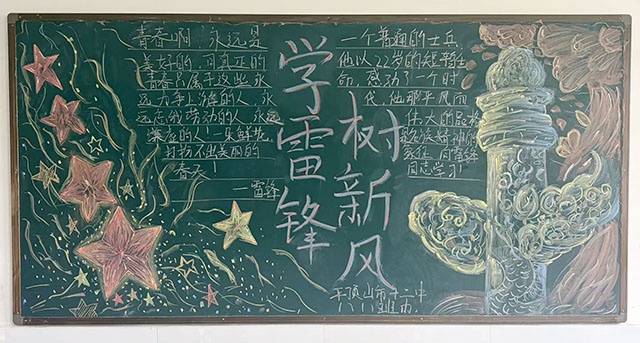 青春啊，永远是
美好的，可真正的
青春只属于这些永
远力争上游的人，永
远忘我劳动的人，永远
谦虚的人！一朵鲜花
打扮不出美丽的
春天！
—雷锋
学雷锋
树新风
一个普通的士兵，
他以22岁的短暂生
命，感动了一个时
代，他那平凡而
伟大的品格
精神的
象征 向雷锋
同志学习！
平顶山市十二中